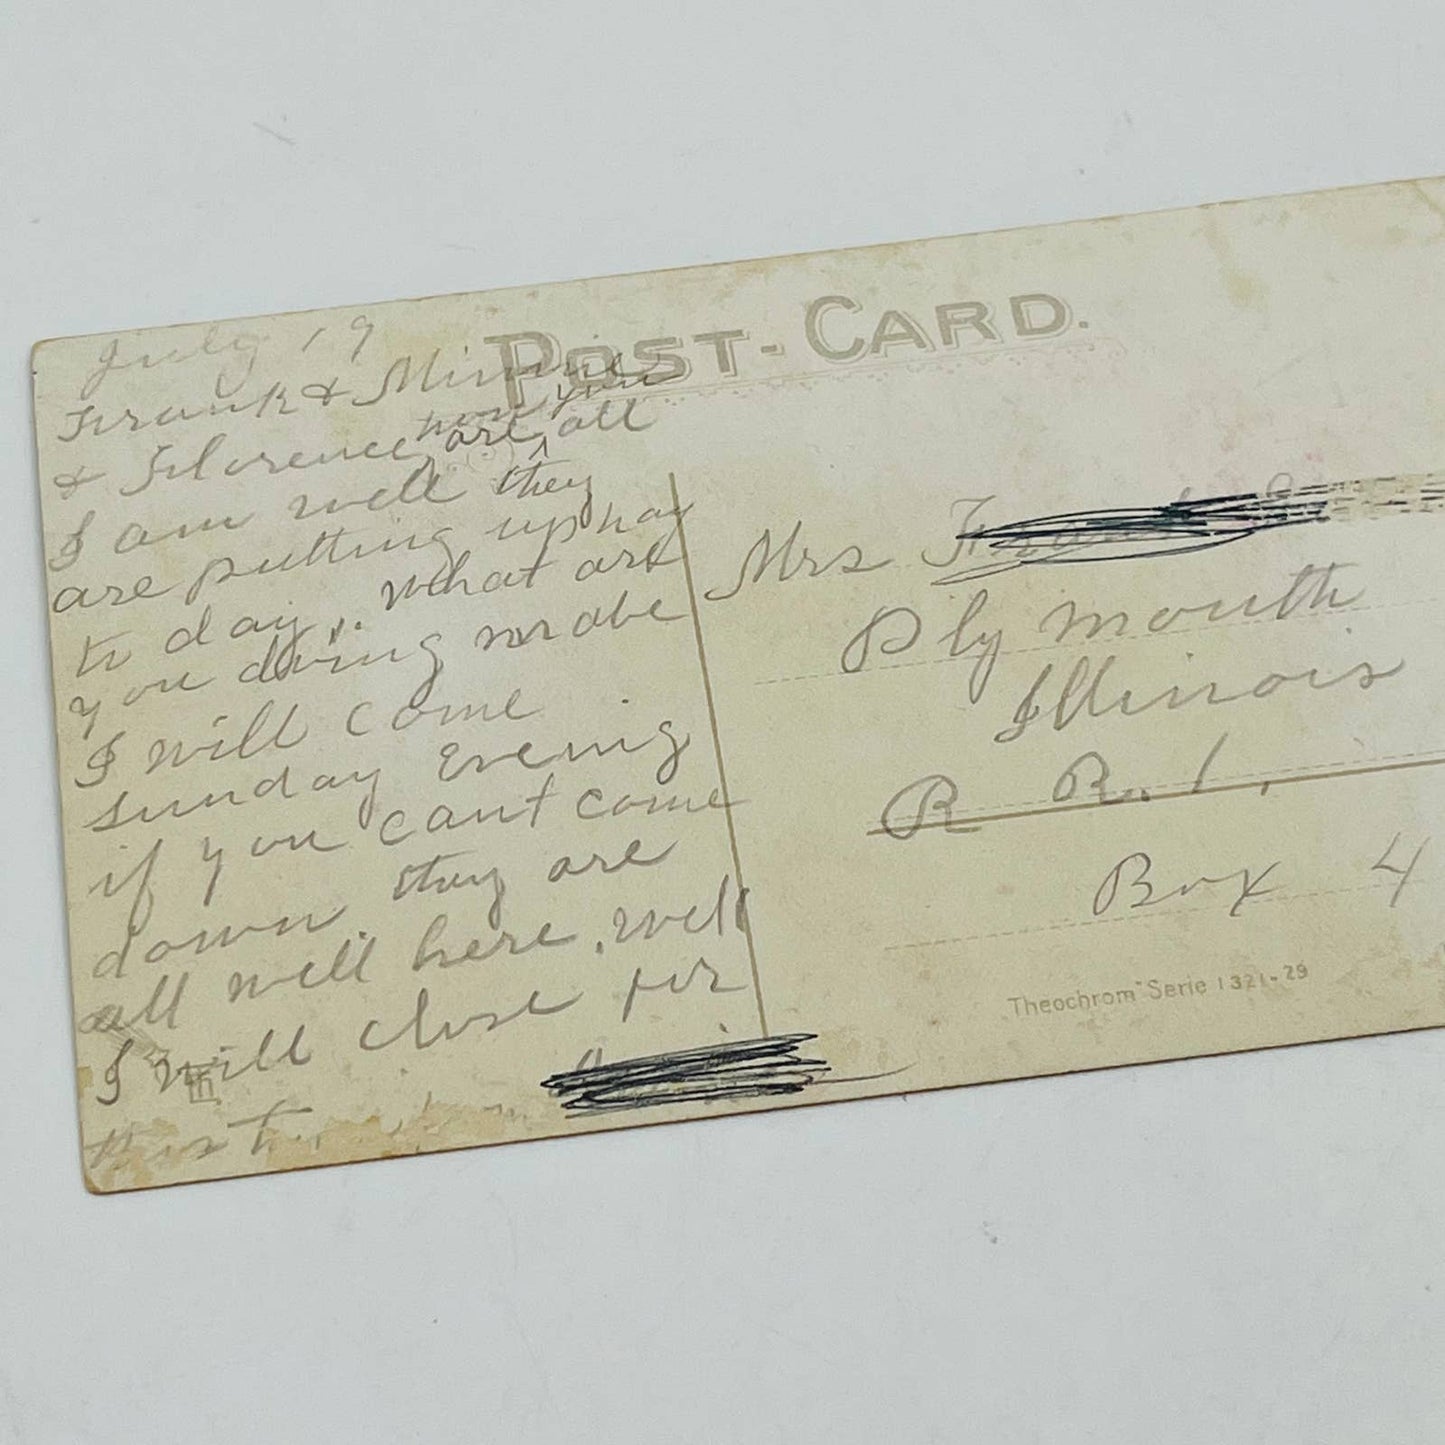 POST-CARD.
July 19
Frank & Minnie
& Florence how are you all
I am well they
are putting up hay
to day. What are
you doing mabe
I will come
sunday Evenig
if you cant come
down. they are
all well here. well
I will close for
this t
Mrs
Plymouth
Illinois
R R. 1,
Box 4
Theochrom Serie 1321-29